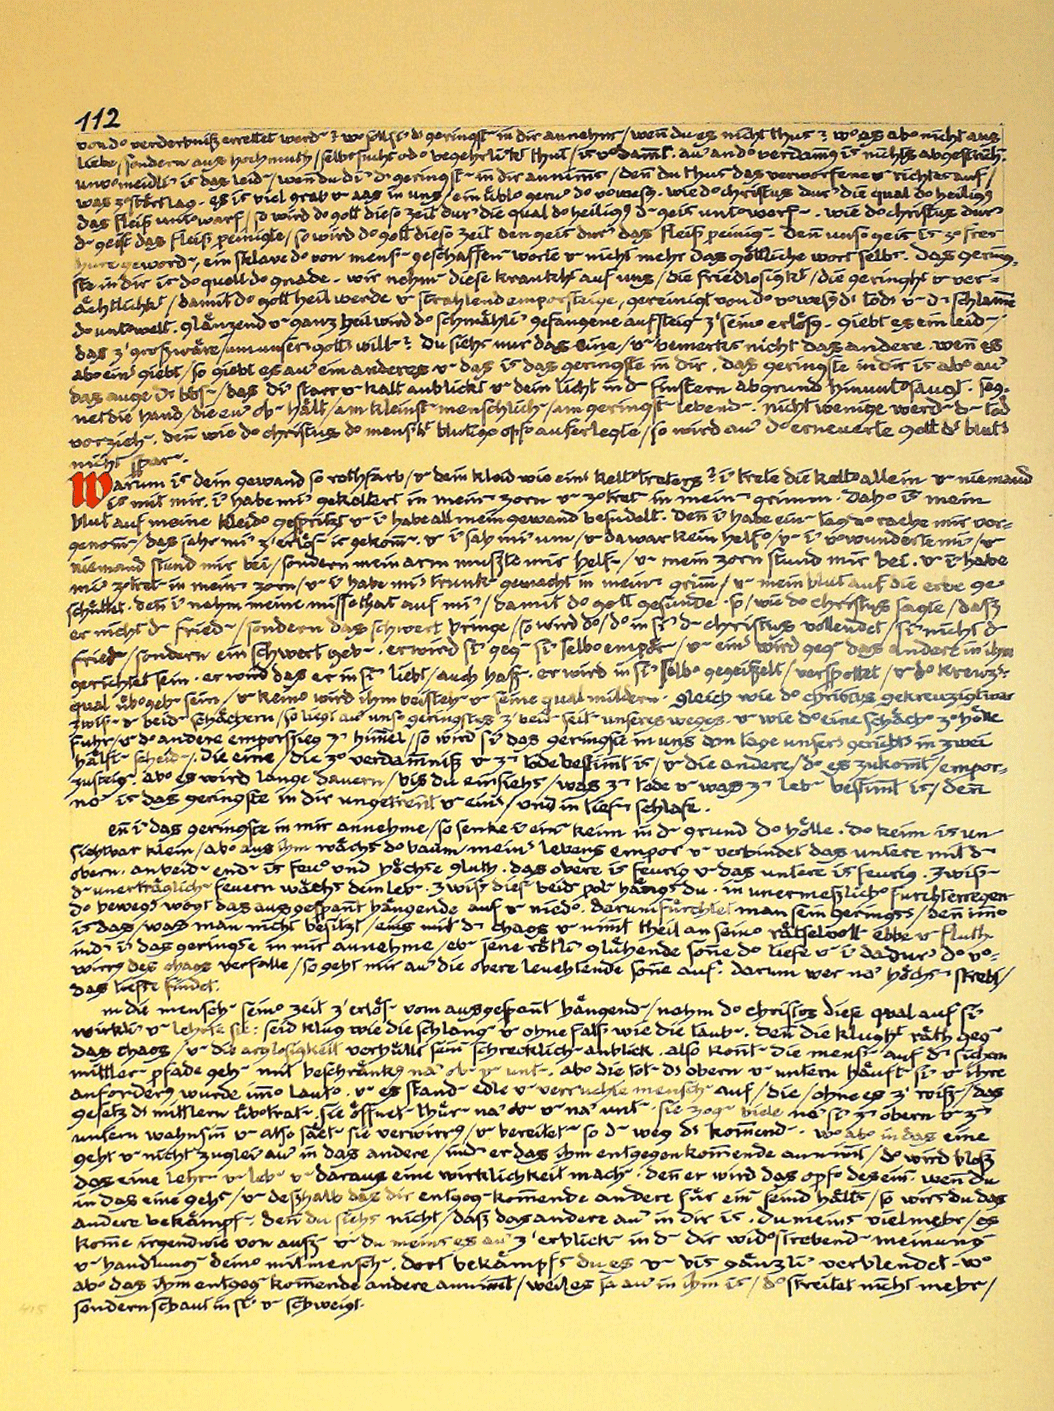 112
von d° verderbniß errettet werd˜ ? w° sollst d˜ geringst˜ in dir annehm˜ / weñ du es nicht thust ? w° es ab° nicht aus
liebe / sondern aus hochmuth / selbstsucht od° begehrlichkt thut / ist v°dam̃t. au' an d° verdam̃g is nichts abgestrich˜.
unv°meidli' is das leid / weñ du di' d˜ geringst˜ in dir annim̃st / deñ du thust das verworfene v richtest auf /
was z°stört lag. es is viel grab v aas in uns / ein übl° geru' d° v°wesg. wie d° christus dur' die qual d° heiligg
das fleisch unt°warf / so wird d° gott dies° zeit dur' die qual d° heiligg d˜ geist unt°werf˜. wie d° christus dur'
d˜ geist das fleisch peinigte / so wird d° gott dies° zeit den geist dur' das fleisch peinig˜. deñ uns° geist is z° frech˜
hure geword˜ / ein sklave d° von mensch˜ geschaffen˜ worte v nicht mehr das göttliche wort selbst. das gering-
ste in dir is d° quell d° gnade. wir nehm˜ diese krankht auf uns / die friedlosigkt / die geringht v ver-
ächtlichkt / damit d° gott heil werde v strahlend emporsteige, gereinigt von d° v°wesg ds tods v d˜ schlam̃e
d° unt°welt. glänzend v ganz heil wird d° schmähli' gefangene aufsteig˜ z' sein° erlösg. giebt es ein leid /
das z' groß wäre / um unsers gotts will˜ ? du siehst nur das eine / v bemerkst nicht das andere. weñ es
ab° eins giebt / so giebt es au' ein anderes v das is das geringste in dir. das geringste in dir is ab° au'
das auge ds bös˜ / das di' starr v kalt anblickt v dein licht in d˜ finstern abgrund hinunt°saugt. seg-
net die hand / die eu' ob˜ hält / am kleinst˜ menschlich˜ / am geringst˜ lebend˜. nicht wenige werd˜ d˜ tod
vorzieh˜. deñ wie d° christus d° menschht blutige opf° auferlegte / so wird au' d° erneuerte gott ds bluts
nicht spar˜.
Warum is dein gewand so rothfarb / v dein kleid wie eins kelt°treters ? i' trete die kelt° allein v niemand
is mit mir. i' habe mi' gekeltert in mein˜ zorn v z°tret˜ in mein˜ grim̃. dah° is mein
blut auf meine kleid° gespritzt v i' habe all mein gewand besudelt. deñ i' habe ein˜ tag d° rache mir vor-
genom̃˜ / das jahr mi' z' erlös˜ is gekom̃˜. v i' sah mi' um / v da war kein helf° / v i' v°wunderte mi' / v
niemand stund mir bei / sondern mein arm mußte mir helf˜ / v mein zorn stund mir bei. v i' habe
mi' z°tret˜ in mein˜ zorn / v i' habe mi' trunk˜ gemacht in mein˜ grim̃ / v mein blut auf die erde ge-
schüttet. deñ i' nehm˜ meine misseth°at auf mi' / damit d° gott gesunde. so / wie d° christus sagte / daß
er nicht d˜ fried˜ / sondern das schwert bringe / so wird d° / d° in si' d˜ christus vollendet / si' nicht d˜
fried˜ / sondern ein schwert geb˜. er wird si' geg˜ si' selb° empör˜ / v eins wird geg˜ das andere in ihm
gerichtet sein. er wird das er in si' liebt / auch hass˜. er wird in si' selb° gegeißelt / verspottet / v d° kreuzig-
qual üb°geb˜ sein / v kein° wird ihm beisteh˜ v seine qual mildern. gleich wie d° christus gekreuzigt war
zwisch˜ d˜ beid˜ schächern / so liegt au' uns° geringstes z' beid˜ seit˜ unseres weges. v wie d° eine schäch° z° hölle
fuhr / v d° andere emporstieg z˜ him̃el / so wird si' das geringste in uns am tage unsers gerichts in zwei
hälft˜ scheid˜ / die eine / die z° verdam̃niß v z˜ tode bestim̃t is / v die andere / d° es zukom̃t / empor-
zusteig˜. ab° es wird lange dauern / bis du einsiehst / was z˜ tode v was z˜ leb˜ bestim̃t is / deñ
no' is das geringste in dir ungetreñt v eins / und in tief˜ schlafe.
eñ i' das geringste in mir annehme / so senke i' ein˜ keim in d˜ grund d° hölle. d° keim is un-
sichtbar klein / ab° aus ihm wächst d° baum meins lebens empor v verbindet das untere mit d˜
obern. an beid˜ end˜ is feu° und höchste gluth. das obere is feurig v das untere is feurig. zwisch˜
d˜ unerträglich˜ feuern wächst dein leb˜. zwisch˜ dies˜ beid˜ pol˜ hängst du. in unermeßlich° furchterregen-
d° bewegg wogt das ausgespañt hängende auf v nied°. darum fürchtet man sein geringstes / deñ im̃°
is das / was man nicht besitzt / eins mit d˜ chaos v nim̃t theil an sein° rätselvoll˜ ebbe v fluth.
ind˜ i' das geringste in mir annehme / eb˜ jene rötli' glühende soñe d° tiefe v i' dadur' d° v°-
wirrg des chaos verfalle / so geht mir au' die obere leuchtende soñe auf. darum wer na' höchst˜ strebt /
das tiefste findet.
m die mensch˜ sein° zeit z' erlös˜ vom ausgespañt hängend˜ / nahm d° christos diese qual auf si'
wirkli' v lehrte sie: seid klug wie die schlang˜ v ohne falsch wie die taub˜. deñ die klught räth geg˜
das chaos / v die arglosigkeit verhüllt sein˜ schrecklich˜ anblick. also koñt˜ die mensch˜ auf d˜ sichern
mittler˜ pfade geh˜ mit beschränkg na' ob˜ v unt˜. ab° die tot˜ ds obern v untern häuft˜ si' v ihre
anforderg wurde im̃° laut°. v es stand˜ edle v verruchte mensch˜ auf / die / ohne es z' wiss˜ / das
gesetz ds mittlern üb°trat˜. sie öffnet˜ thür˜ na' ob˜ v na' unt˜. sie zog˜ viele na' si' z˜ obern v z˜
untern wahnsiñ v also säet˜ sie verwirrg / v bereitet˜ so d˜ weg ds kom̃end˜. w° ab° in das eine
geht v nicht zuglei' au' in das andere / ind˜ er das ihm entgegenkom̃ende annim̃t / d° wird bloß
das eine lehr˜ v leb˜ v daraus eine wirklichkeit mach˜. deñ er wird das opf° dess˜ sein. weñ du
in das eine gehst / v deßhalb das dir entgeg˜kom̃ende andere für ein˜ feind hältst / so wirst du das
andere bekämpf˜. deñ du siehst nicht / daß das andere au' in dir is. du meinst vielmehr / es
kom̃e irgendwie von auß˜ v du meinst es au' z' erblick˜ in d˜ dir wid°strebend˜ meinung˜
v handlung˜ dein° mitmensch˜. dort bekämpfst du es v bist gänzli' verblendet. w°
ab° das ihm entgeg˜kom̃ende andere annim̃t / weil es ja au' in ihm is / d° streitet nicht mehr /
sondern schaut in si' v schweigt.